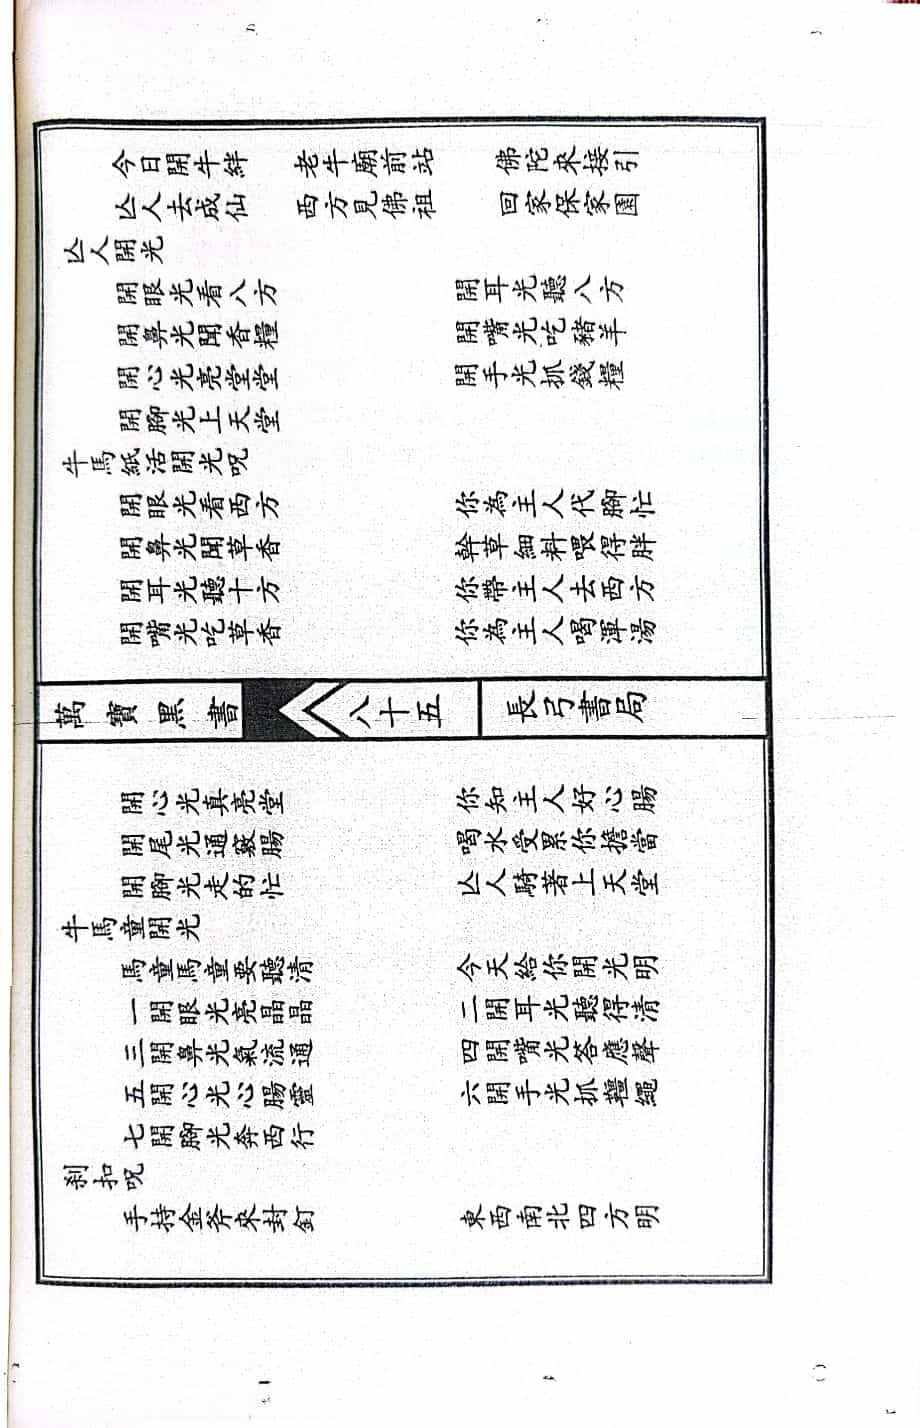 今日開牛絆　老牛廟前站　佛陀來接引
亾人去成仙　西方見佛祖　回家保家園
亾人開光
開眼光看八方　開耳光聽八方
開鼻光聞香糧　開嘴光吃豬羊
開心光亮堂堂　開手光抓錢糧
開腳光上天堂
牛馬紙活開光呪
開眼光看西方　你為主人代腳忙
開鼻光聞草香　幹草細料喂得胖
開耳光聽十方　你帶主人去西方
開嘴光吃草香　你為主人喝渾湯
萬寶黑書　八十五　長弓書局
開心光真亮堂　你知主人好心腸
開尾光通竅腸　喝水受累你擔當
開腳光走的忙　亾人騎著上天堂
牛馬童開光
馬童馬童要聽清　今天給你開光明
一開眼光亮晶晶　二開耳光聽得清
三開鼻光氣流通　四開嘴光答應聲
五開心光心腸靈　六開手光抓韁繩
七開腳光奔西行
刹扣呪
手持金斧來封釘　東西南北四方明